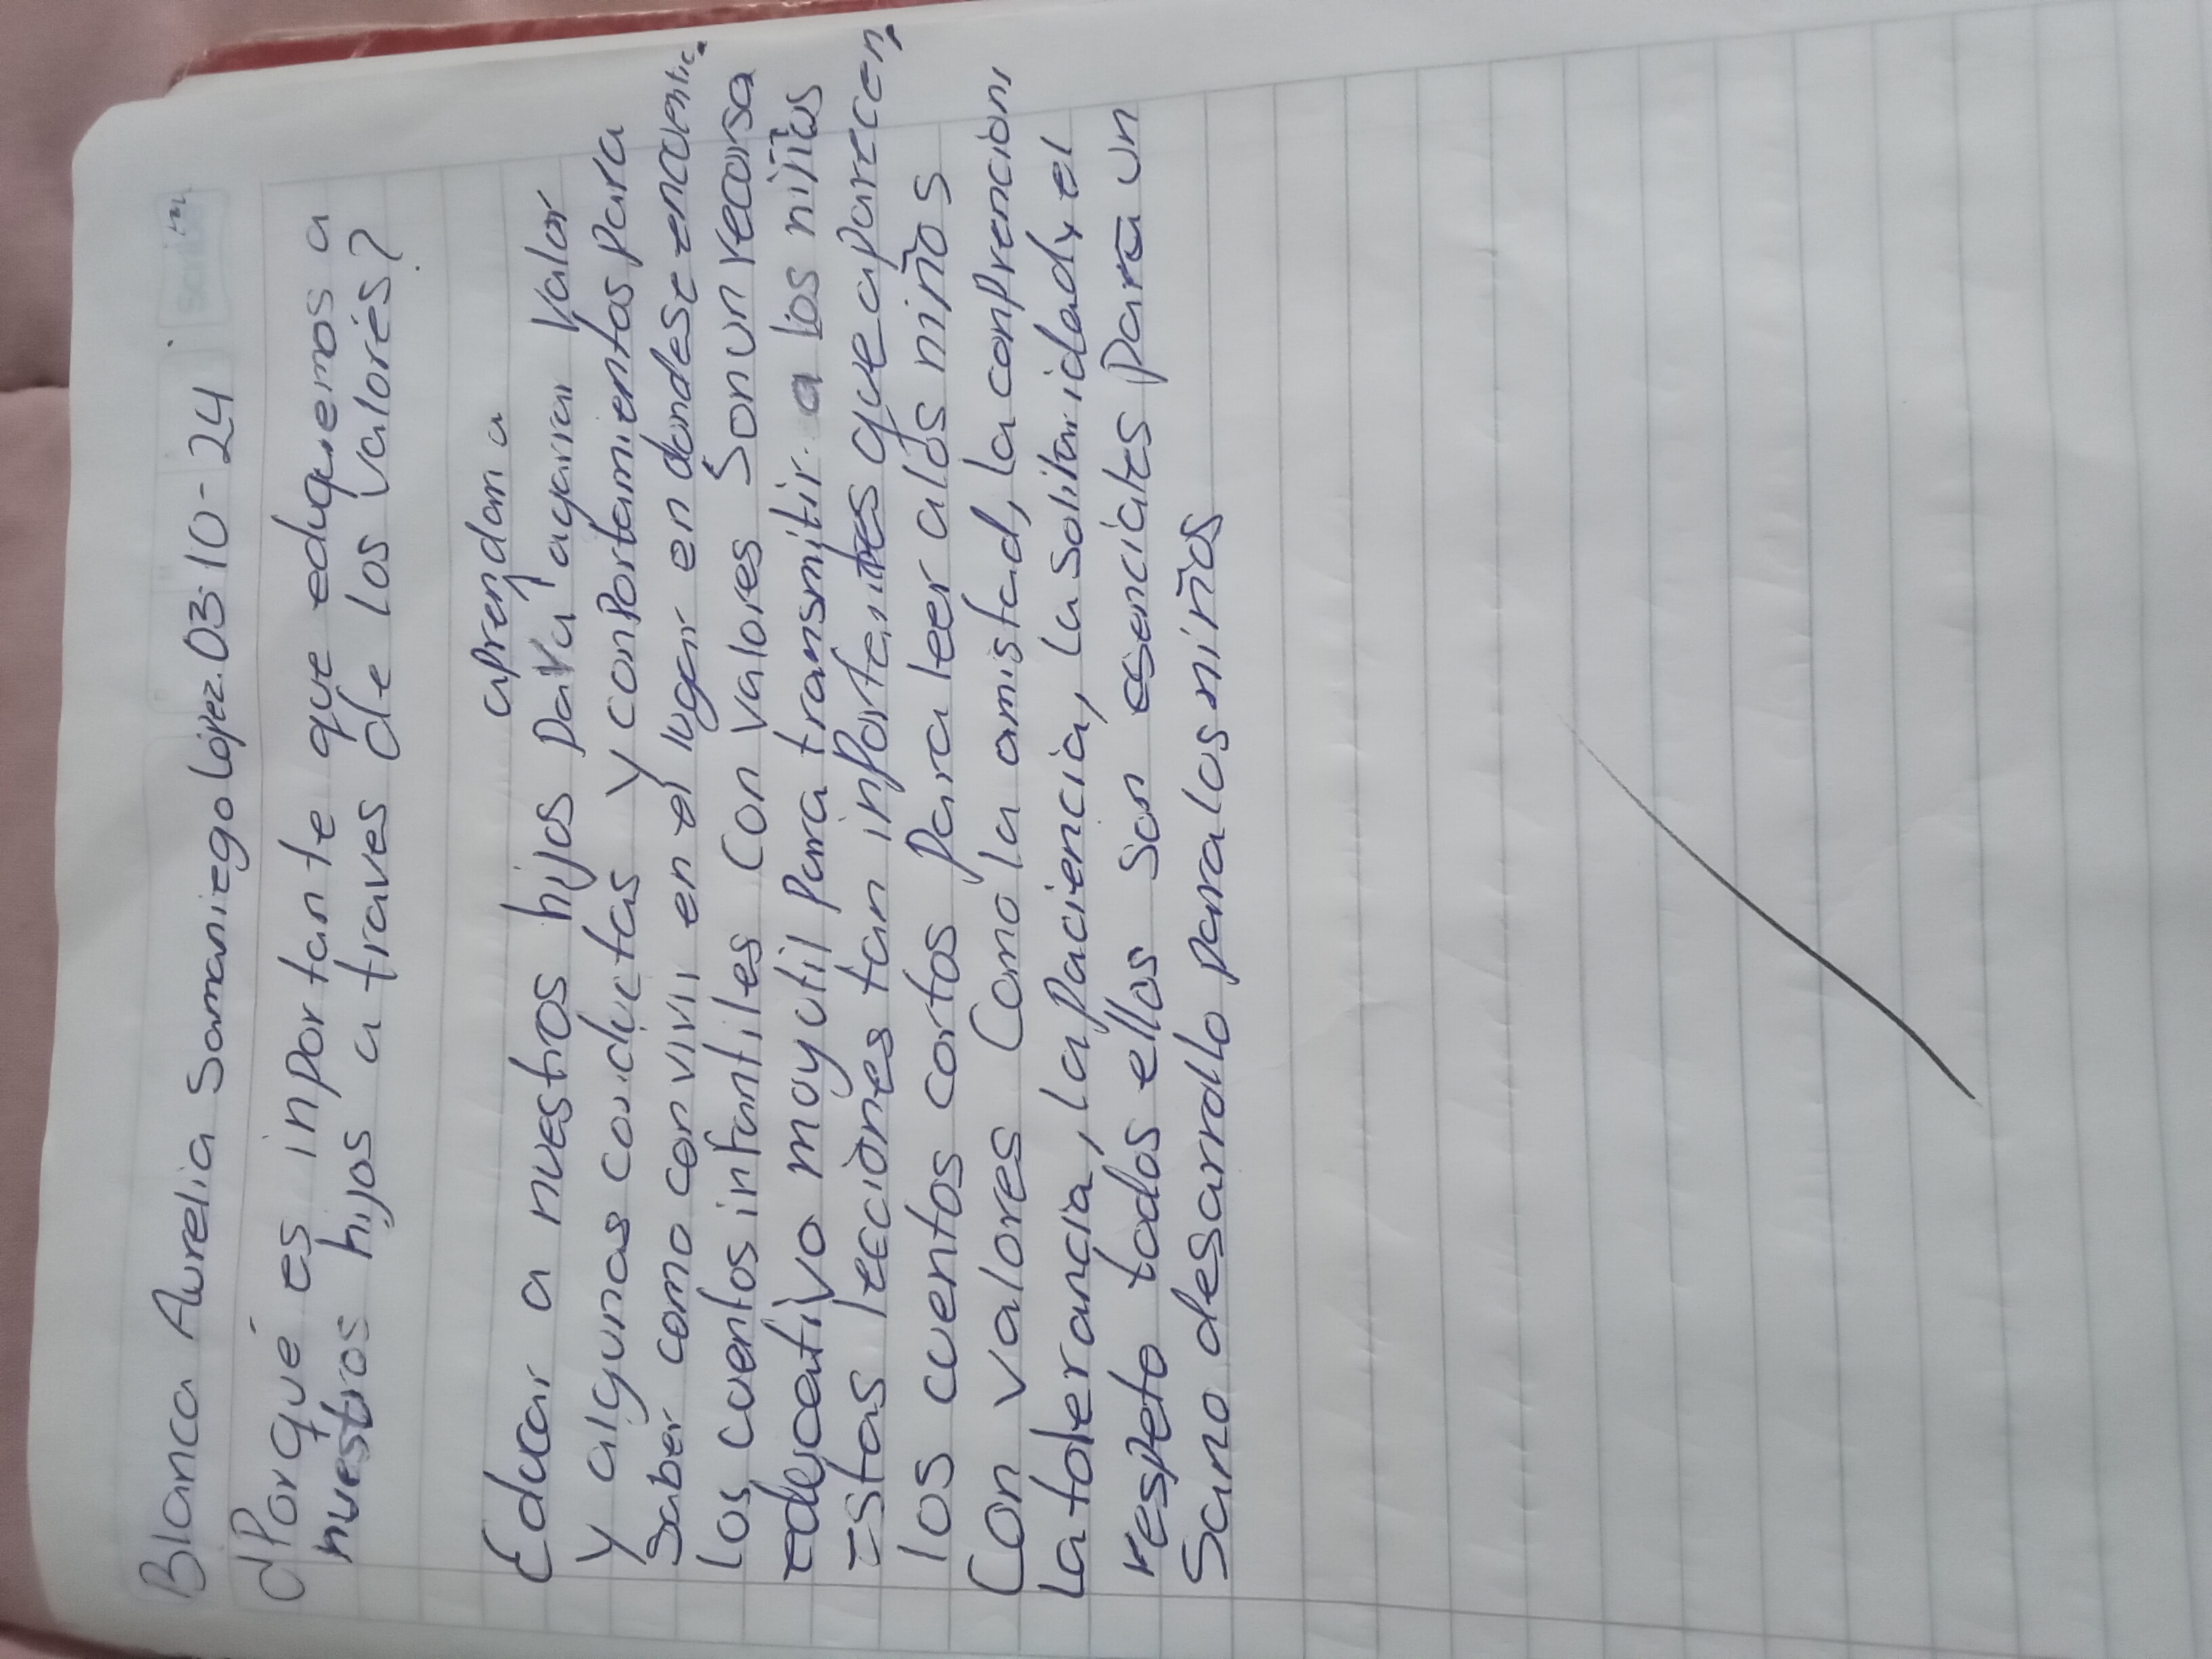 Blanca Aurelia Samaniego López. 03-10-24
¿Porqué es inportante que eduquemos a
nuestros hijos a traves de los valores?
aprendan a
Educar a nuestros hijos para agarrar valor
y algunas conductas y conportamientos para
saber como convivir en el lugar en donde se encuentre.
los cuentos infantiles con valores son un recorsa
educativo moy util para transmitir a los niños
estas lecciones tan inportantes que aparecen,
los cuentos cortos para leer a los niños
Con valores como la amistad, la conprencion,
la tolerancia, la paciencia, la solitaridad y el
respeto todos ellos son esenciales para un
Sano desarrollo para los niños